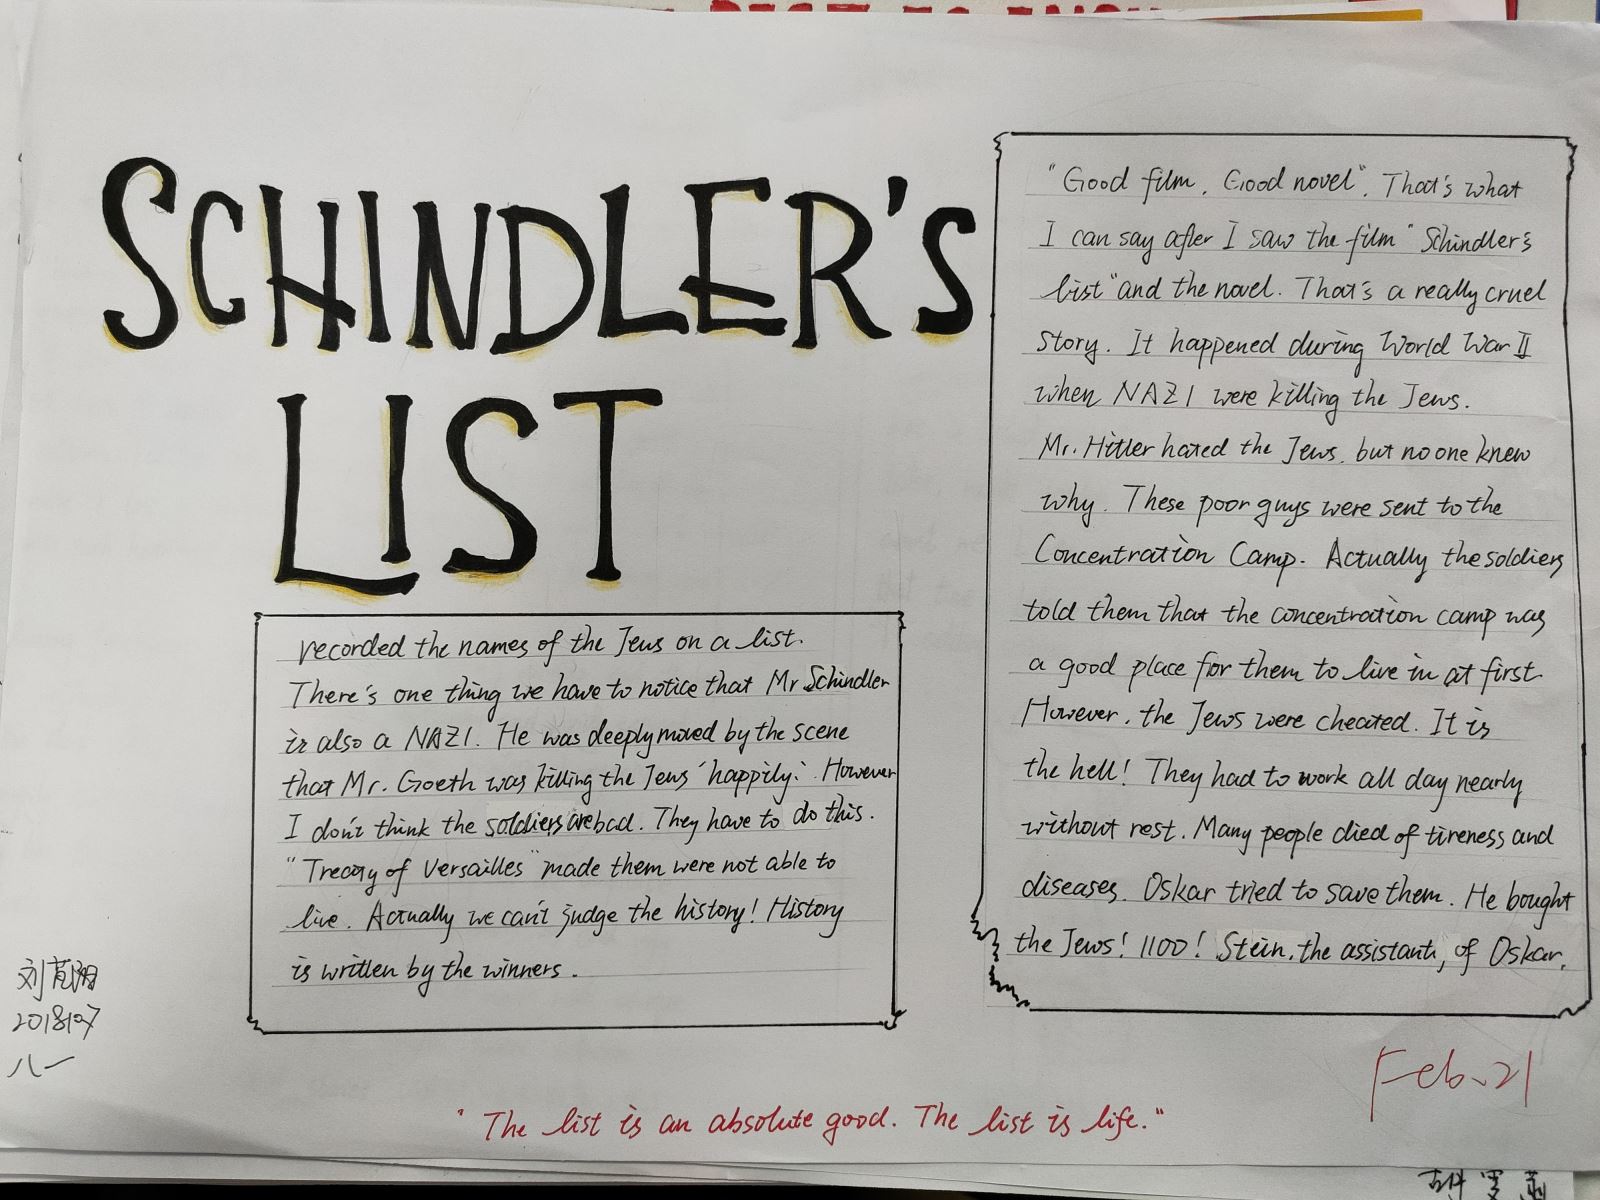 SCHINDLER'S
LIST
"Good film, Good novel". That's what
I can say after I saw the film "Schindler's
list" and the novel. That's a really cruel
story. It happened during World War II
when NAZI were killing the Jews.
Mr. Hitler hated the Jews, but no one knew
why. These poor guys were sent to the
Concentration Camp. Actually the soldiers
told them that the concentration camp was
a good place for them to live in at first.
However, the Jews were cheated. It is
the hell! They had to work all day nearly
without rest. Many people died of tireness and
diseases. Oskar tried to save them. He bought
the Jews! 1100! Stein, the assistant, of Oskar,
recorded the names of the Jews on a list.
There's one thing we have to notice that Mr Schindler
is also a NAZI. He was deeply moved by the scene
that Mr. Goeth was killing the Jews 'happily'. However
I don't think the soldiers are bad. They have to do this.
"Treaty of Versailles" made them were not able to
live. Actually we can't judge the history! History
is written by the winners.
2018107
八一
Feb. 21
"The list is an absolute good. The list is life."